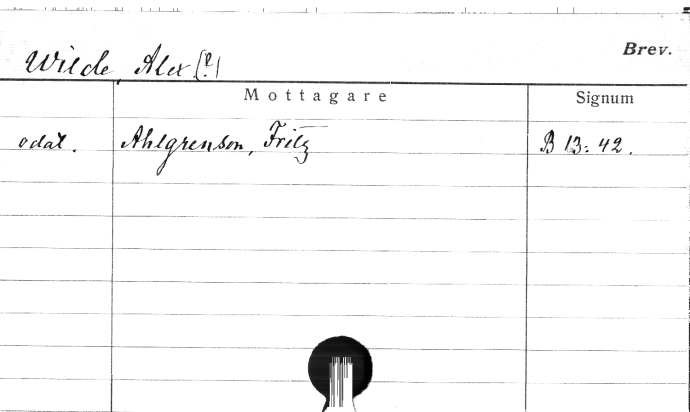 Brev.
Wilde, Alex [?]
Mottagare Signum
odat. Ahlgrenson, Fritz B 13:42.